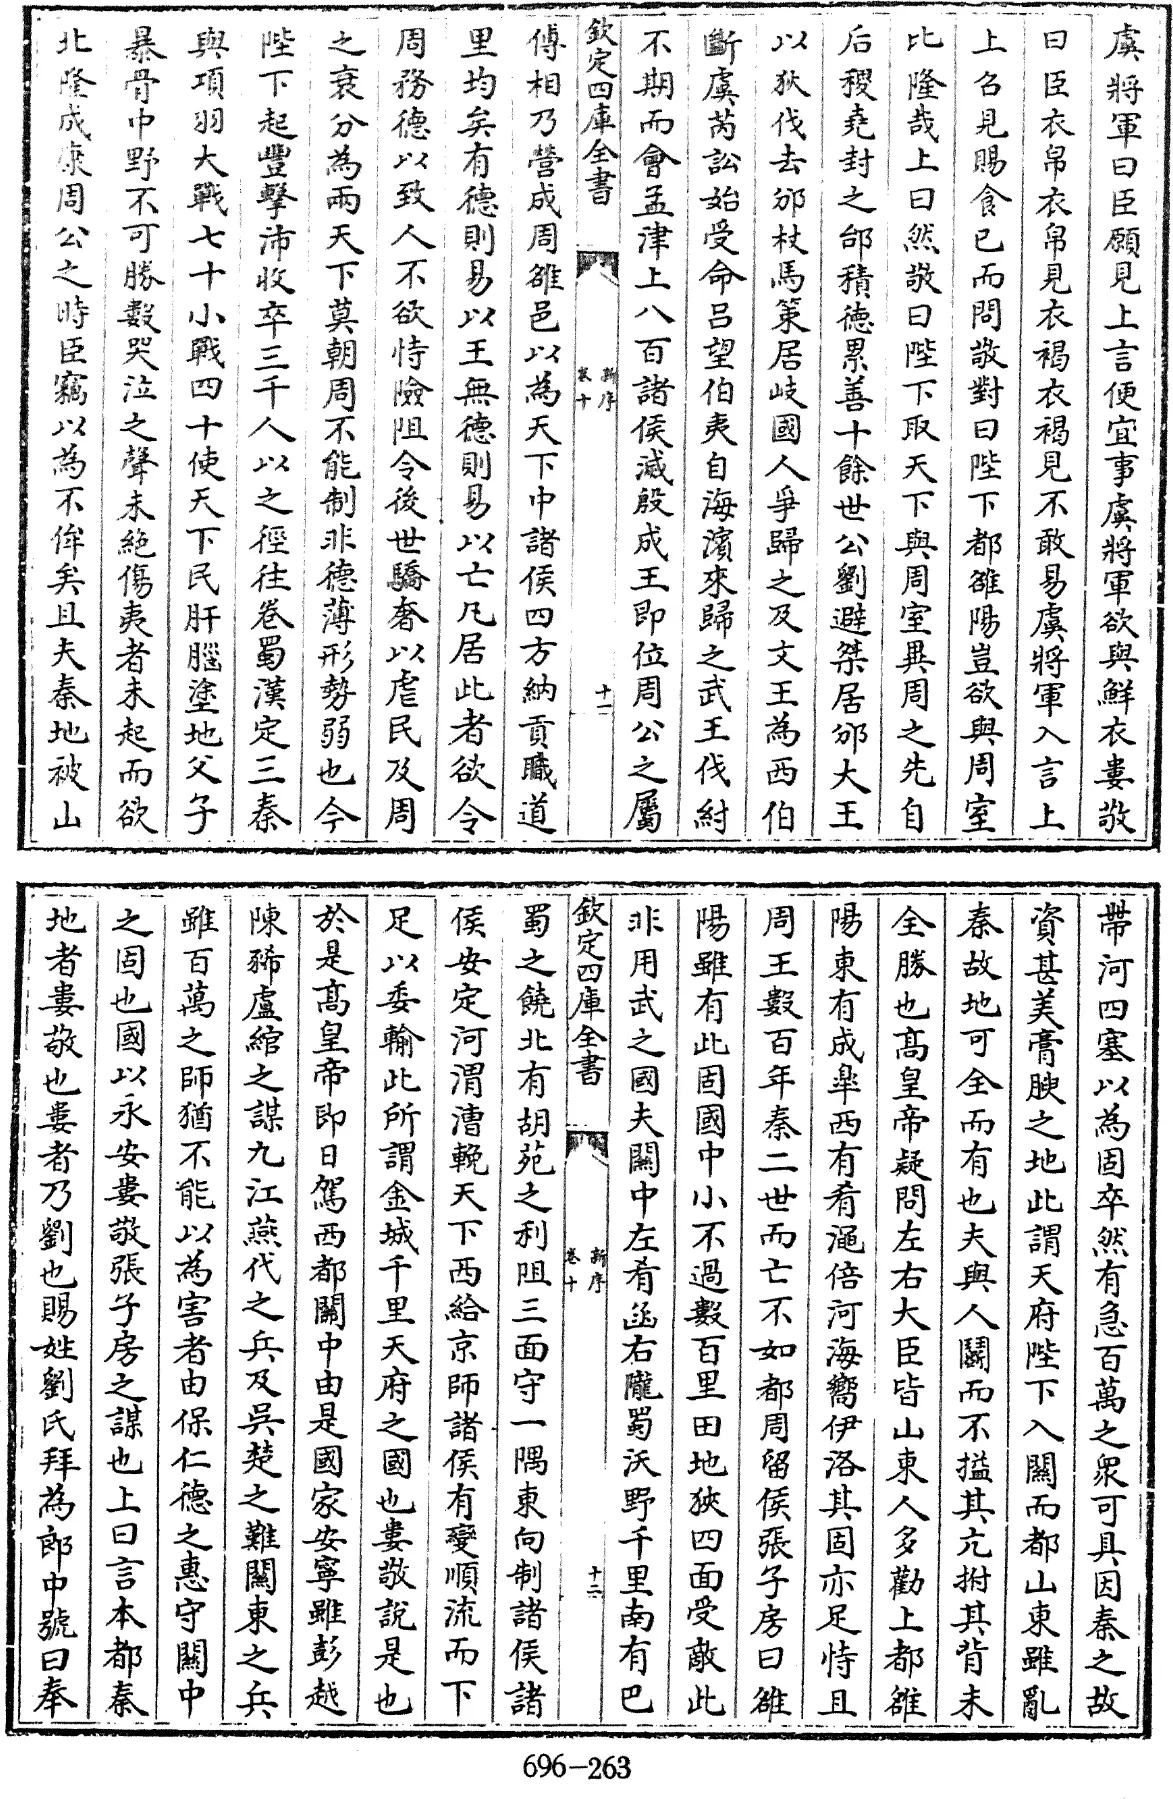 虞將軍曰臣願見上言便宜事虞將軍欲與鮮衣婁敬
曰臣衣帛衣帛見衣褐衣褐見不敢易虞將軍入言上
上召見賜食已而問敬對曰陛下都雒陽豈欲與周室
比隆哉上曰然敬曰陛下取天下與周室異周之先自
后稷堯封之邰積德累善十餘世公劉避桀居邠大王
以狄伐去邠杖馬箠居岐國人爭歸之及文王為西伯
斷虞芮訟始受命呂望伯夷自海濱來歸之武王伐紂
不期而會孟津上八百諸侯滅殷成王即位周公之屬
欽定四庫全書
新序
卷十
十一
傅相乃營成周雒邑以為天下中諸侯四方納貢職道
里均矣有德則易以王無德則易以亡凡居此者欲令
周務德以致人不欲恃險阻令後世驕奢以虐民及周
之衰分為兩天下莫朝周不能制非德薄形勢弱也今
陛下起豐擊沛收卒三千人以之徑往卷蜀漢定三秦
與項羽大戰七十小戰四十使天下民肝腦塗地父子
暴骨中野不可勝數哭泣之聲未絶傷夷者未起而欲
比隆成康周公之時臣竊以為不侔矣且夫秦地被山
帶河四塞以為固卒然有急百萬之衆可具因秦之故
資甚美膏腴之地此謂天府陛下入關而都山東雖亂
秦故地可全而有也夫與人鬭而不搤其亢拊其背未
全勝也髙皇帝疑問左右大臣皆山東人多勸上都雒
陽東有成臯西有肴澠倍河海嚮伊洛其固亦足恃且
周王數百年秦二世而亡不如都周留侯張子房曰雒
陽雖有此固國中小不過數百里田地狹四面受敵此
非用武之國夫關中左肴函右隴蜀沃野千里南有巴
欽定四庫全書
新序
卷十
十二
蜀之饒北有胡苑之利阻三面守一隅東向制諸侯諸
侯安定河渭漕輓天下西給京師諸侯有變順流而下
足以委輸此所謂金城千里天府之國也婁敬說是也
於是髙皇帝即日駕西都關中由是國家安寧雖彭越
陳豨盧綰之謀九江燕代之兵及吳楚之難關東之兵
雖百萬之師猶不能以為害者由保仁德之惠守關中
之固也國以永安婁敬張子房之謀也上曰言本都秦
地者婁敬也婁者乃劉也賜姓劉氏拜為郎中號曰奉
696-263